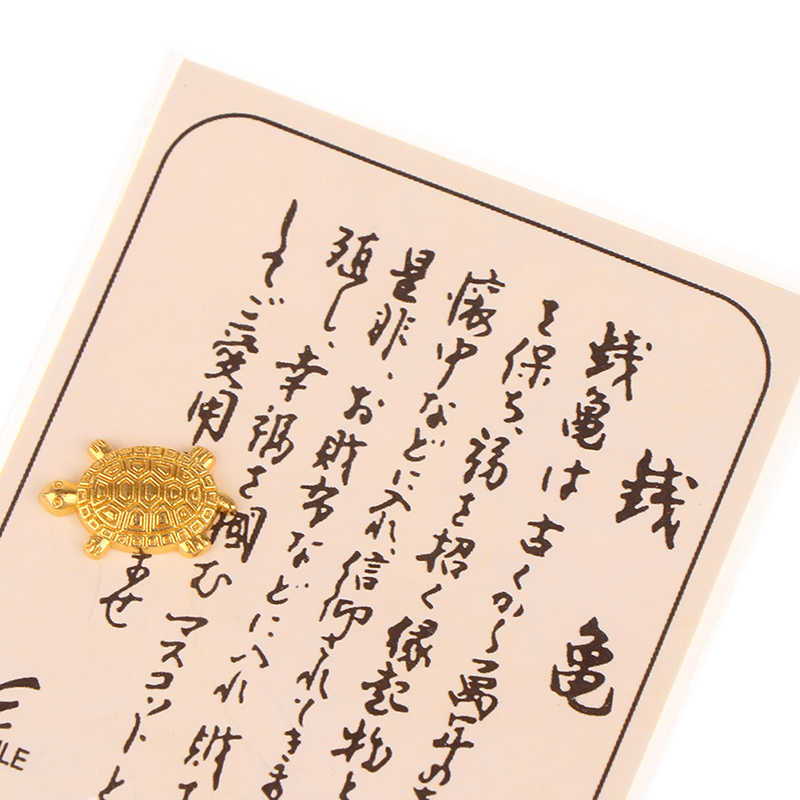 銭亀
銭亀は古くから萬年の
を保ち、福を招く縁起物と
懐中などに入れ、信仰されてきま
是非、お財布などに入れ財
殖し、幸福を掴むマスコットと
してご愛用
ませ
ILE